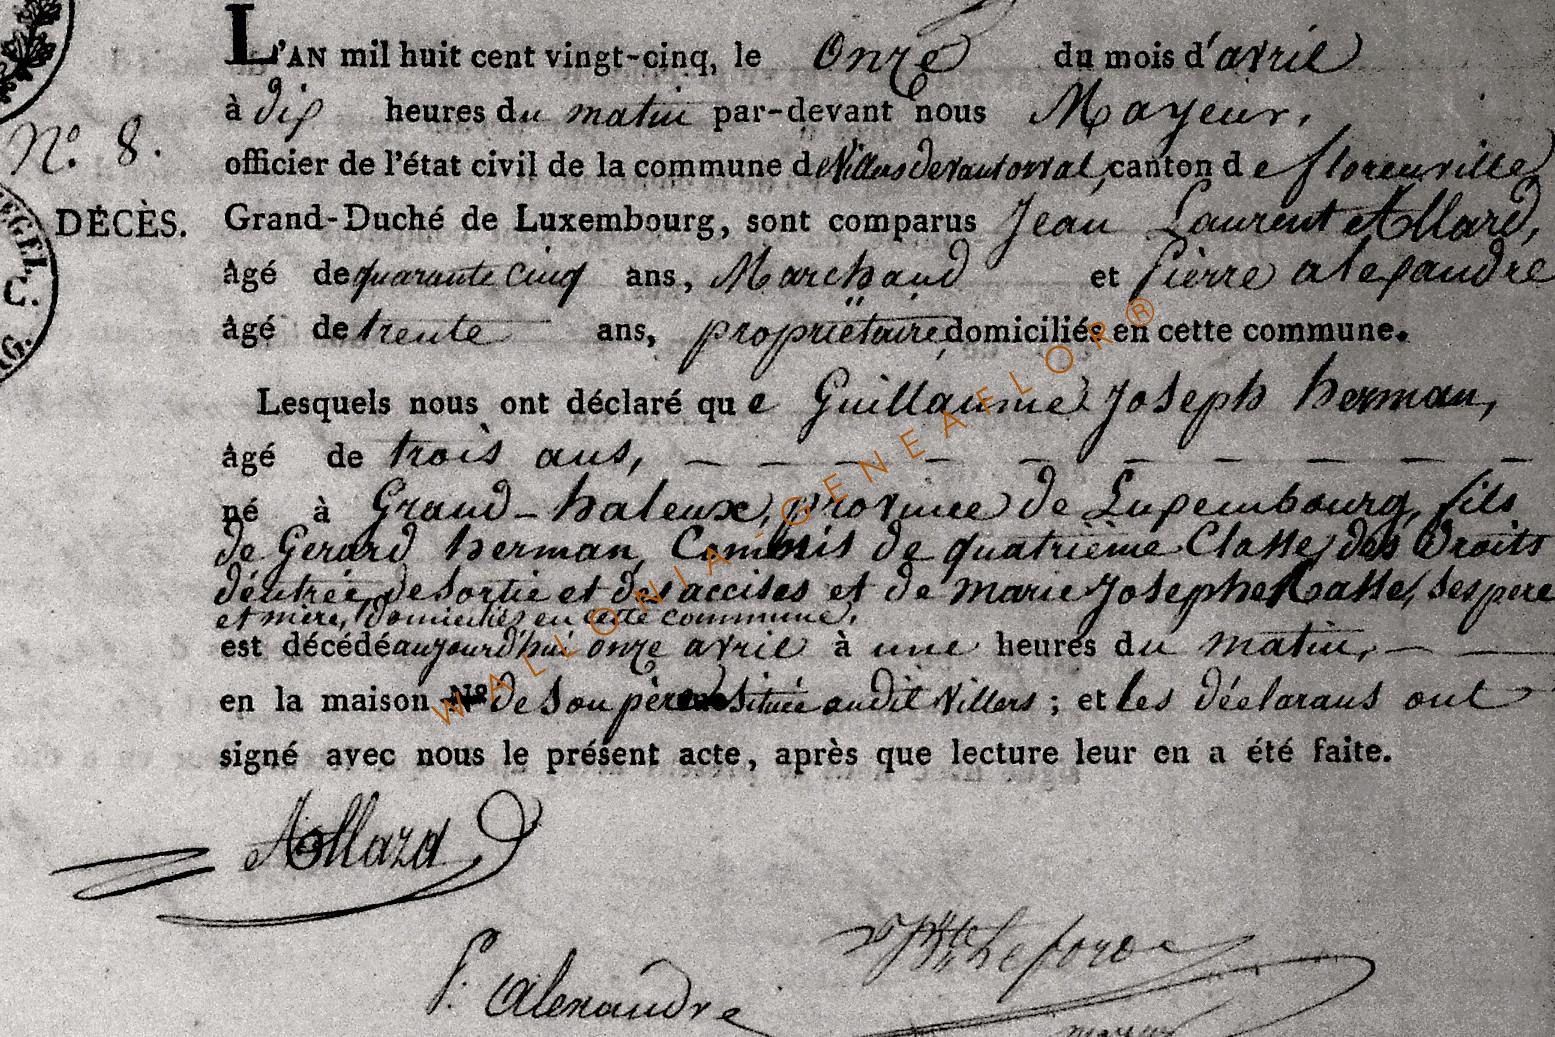 L'AN mil huit cent vingt-cinq, le onze du mois d'avril
à dix heures du matin par-devant nous Mayeur,
N.° 8.
officier de l'état civil de la commune de Villers devant orval, canton de florenville
DÉCÈS.
Grand-Duché de Luxembourg, sont comparus Jean Laurent Allard,
âgé de quarante cinq ans, Marchand et Pierre alexandre
âgé de trente ans, propriëtaire, domiciliés en cette commune.
Lesquels nous ont déclaré que Guillaume Joseph herman,
âgé de trois ans,
né à Grand-haleux, province de Luxembourg, fils
de Gerard herman, Commis de quatrième Classe, des Droits
d'éntrée, de Sortie et des accises et de marie Josephe Lasse, ses pere
et mère, domiciliés en cette commune,
est décédé aujourd'hui onze avril à une heures du matin,
en la maison N° de son père située audit Villers ; et les déclarans ont
signé avec nous le présent acte, après que lecture leur en a été faite.
Allard
P. Alexandre
mayeur
EGEL
C.
WALLONIA-GENEAFLOR®